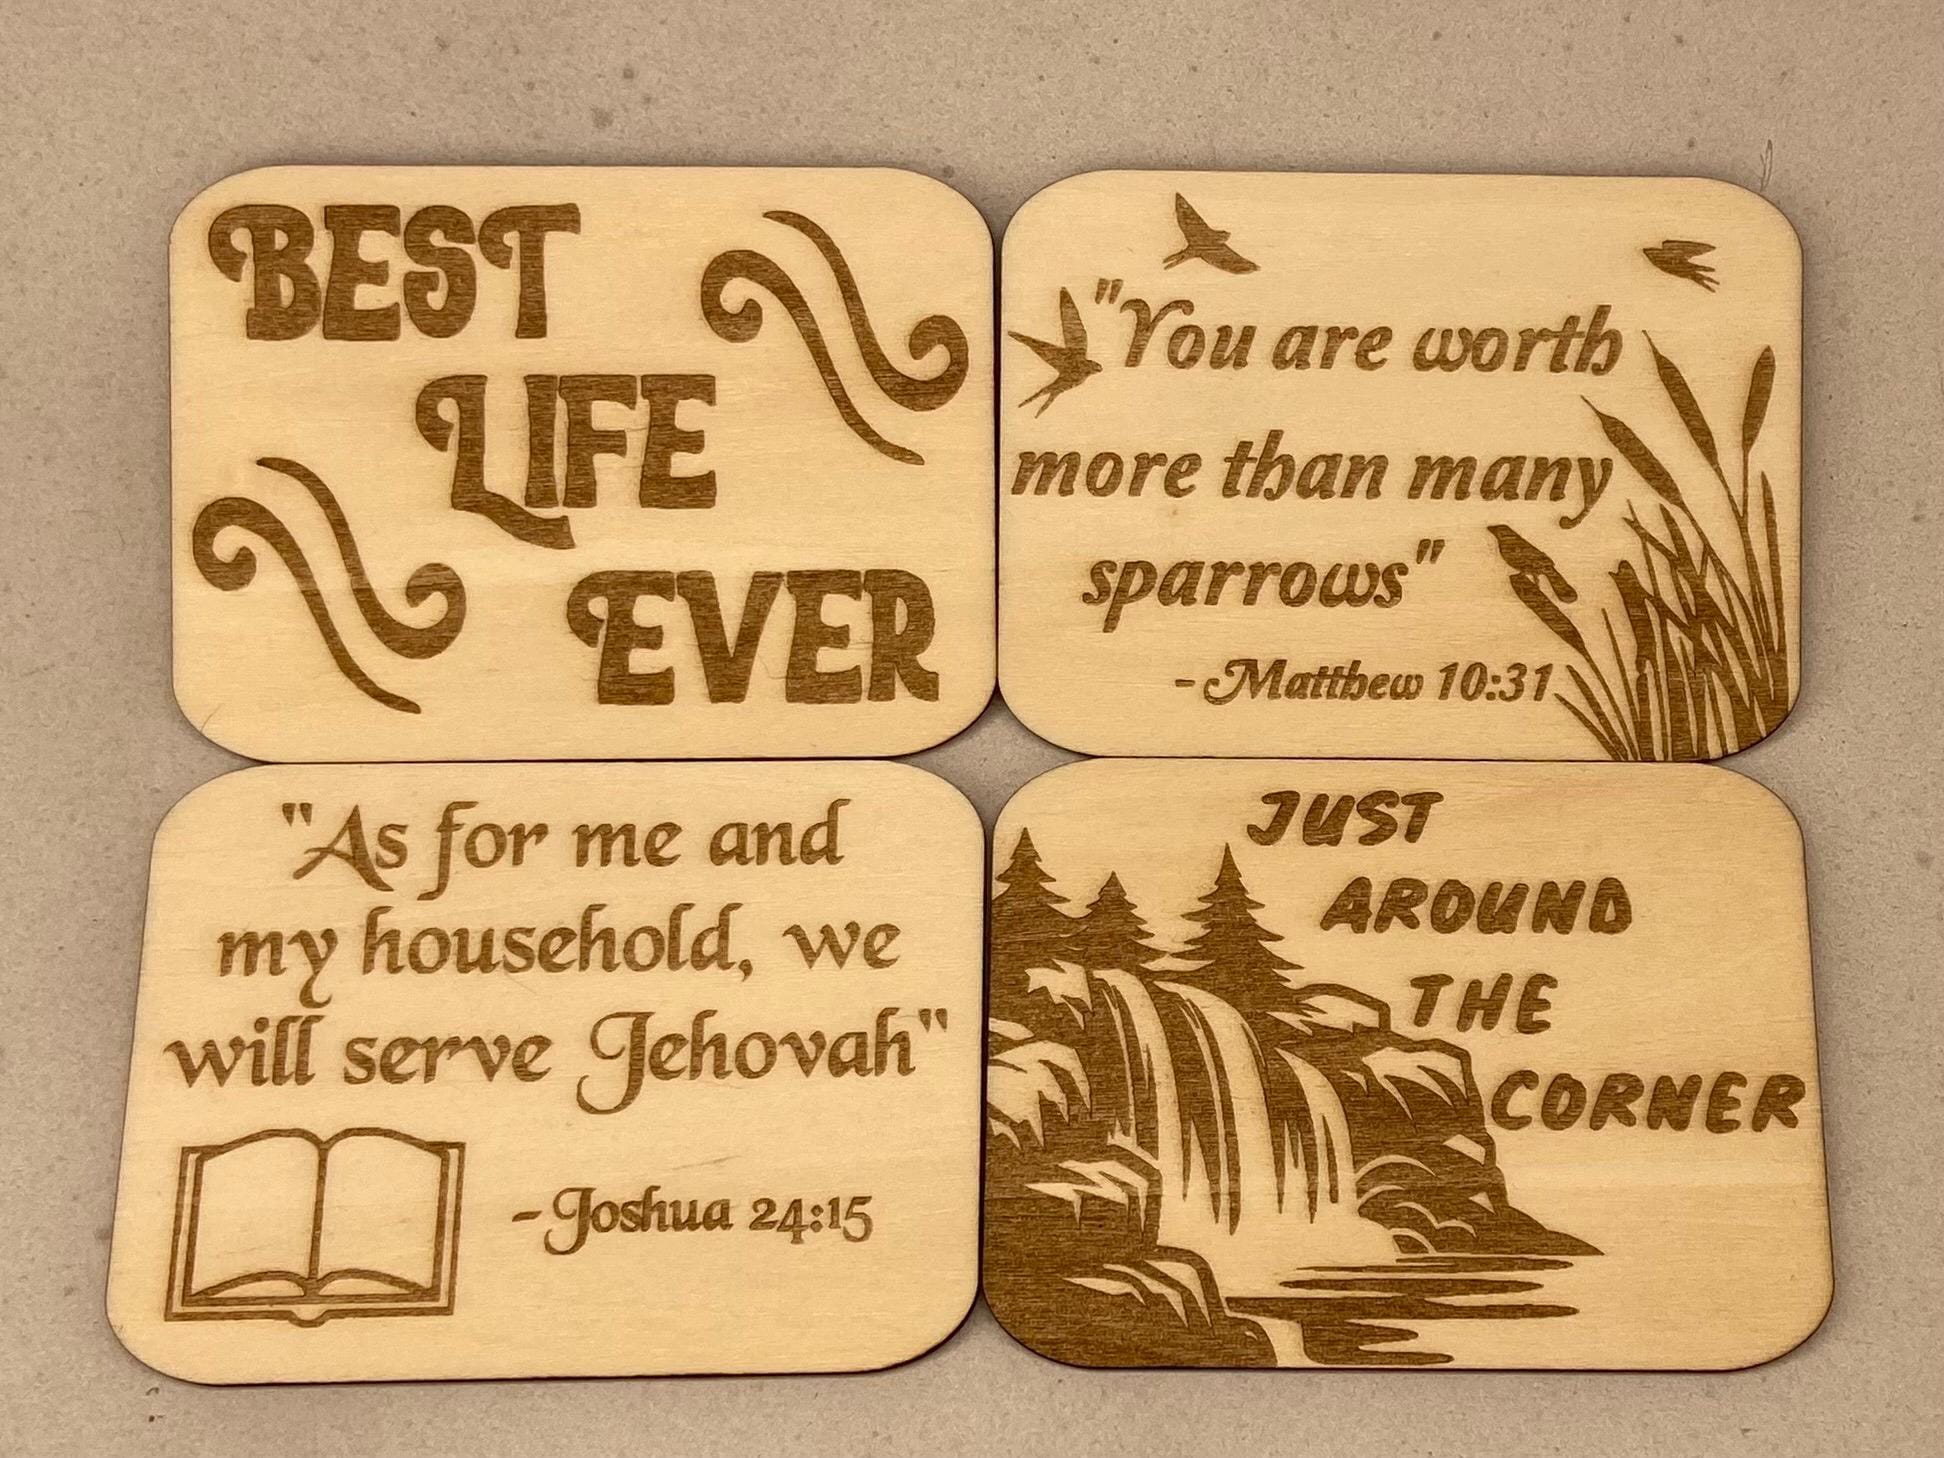 BEST
LIFE
EVER
"You are worth
more than many
sparrows"
-Matthew 10:31
"As for me and
my household, we
will serve Jehovah"
-Joshua 24:15
JUST
AROUND
THE
CORNER